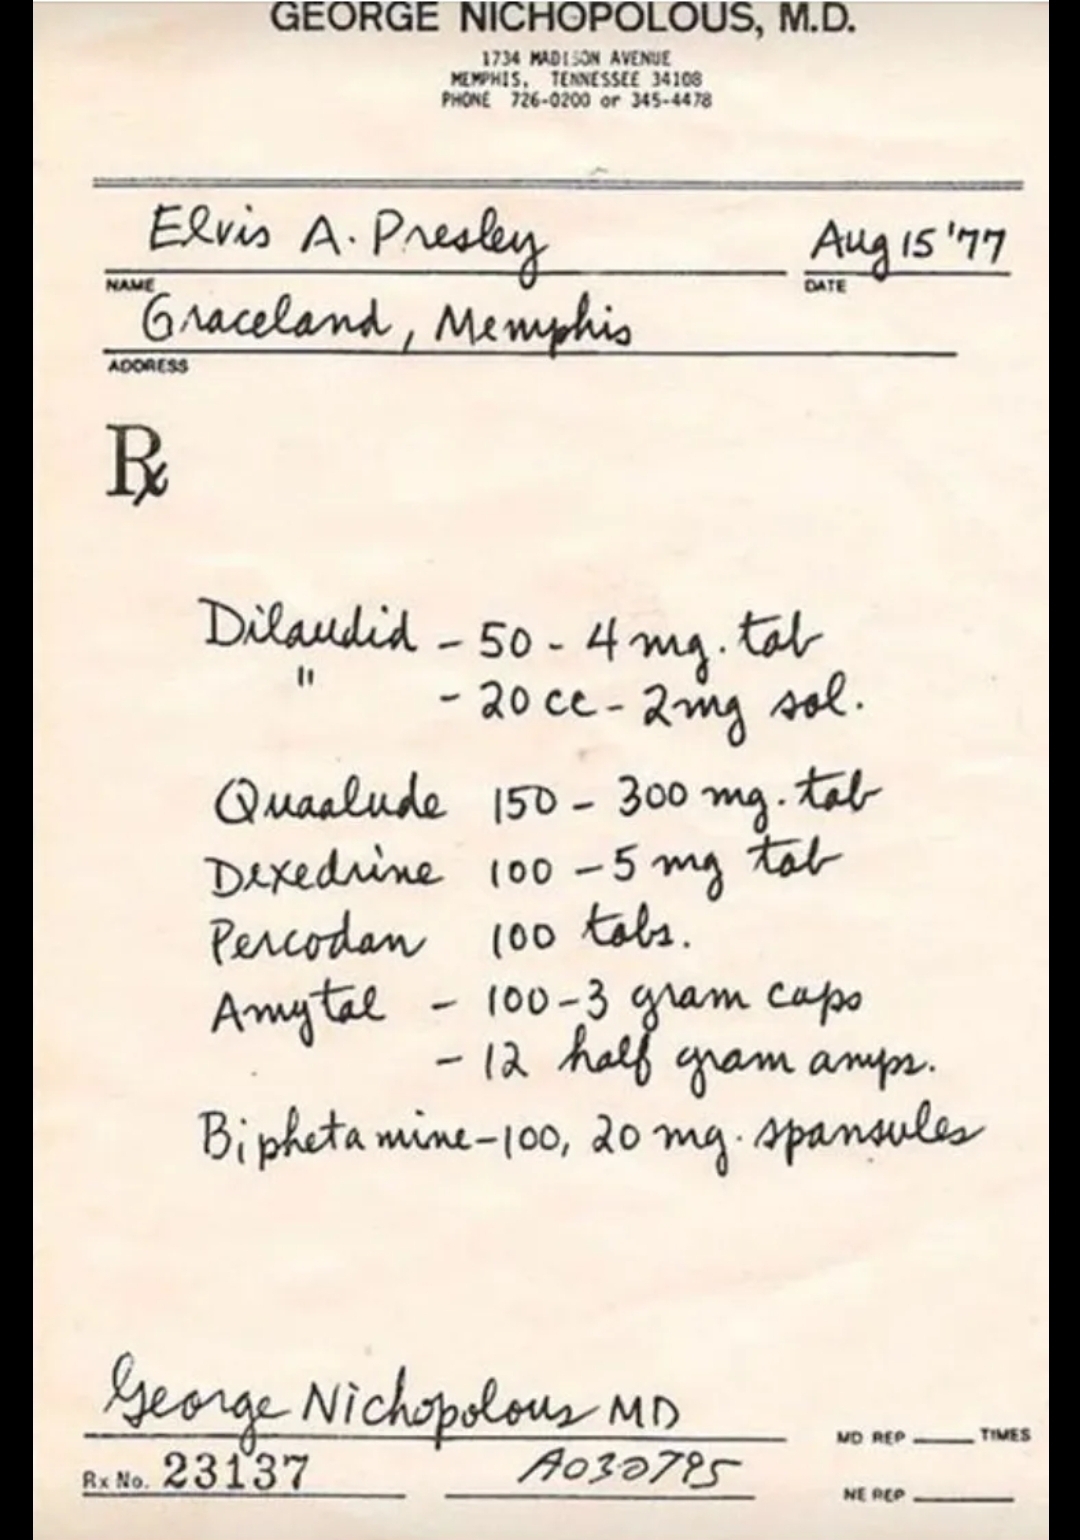 GEORGE NICHOPOLOUS, M.D.
1734 MADISON AVENUE
MEMPHIS, TENNESSEE 34108
PHONE 726-0200 or 345-4478
Elvis A. Presley Aug 15 '77
NAME DATE
Graceland, Memphis
ADDRESS
Rx
Dilaudid - 50 - 4 mg. tab
" - 20 cc - 2mg sol.
Quaalude 150 - 300 mg. tab
Dexedrine 100 - 5 mg tab
Percodan 100 tabs.
Amytal - 100-3 gram caps
- 12 half gram amps.
Biphetamine-100, 20 mg. spansules
George Nichopolous MD
MD REP ____ TIMES
Rx No. 23137 A030795
NE REP ____